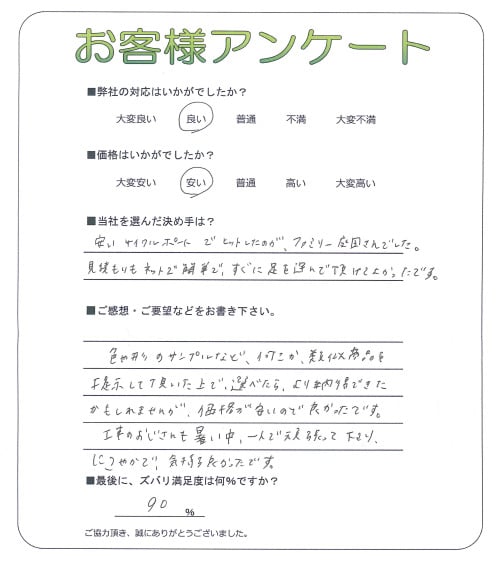 お客様アンケート
■弊社の対応はいかがでしたか？
大変良い 良い 普通 不満 大変不満
■価格はいかがでしたか？
大変安い 安い 普通 高い 大変高い
■当社を選んだ決め手は？
安い サイクルポート でヒットしたのが、ファミリー庭園さんでした。
見積もりもネットで簡単で、すぐに足を運んで頂けてよかったです。
■ご感想・ご要望などをお書き下さい。
色や形のサンプルなど、何こか、類似商品を
提示して頂いた上で、選べたら、より納得できた
かもしれませんが、価格が安いので良かったです。
工事のおじさんも暑い中、一人で頑張って下さり、
にこやかで、気持ち良かったです。
■最後に、ズバリ満足度は何％ですか？
90 ％
ご協力頂き、誠にありがとうございました。